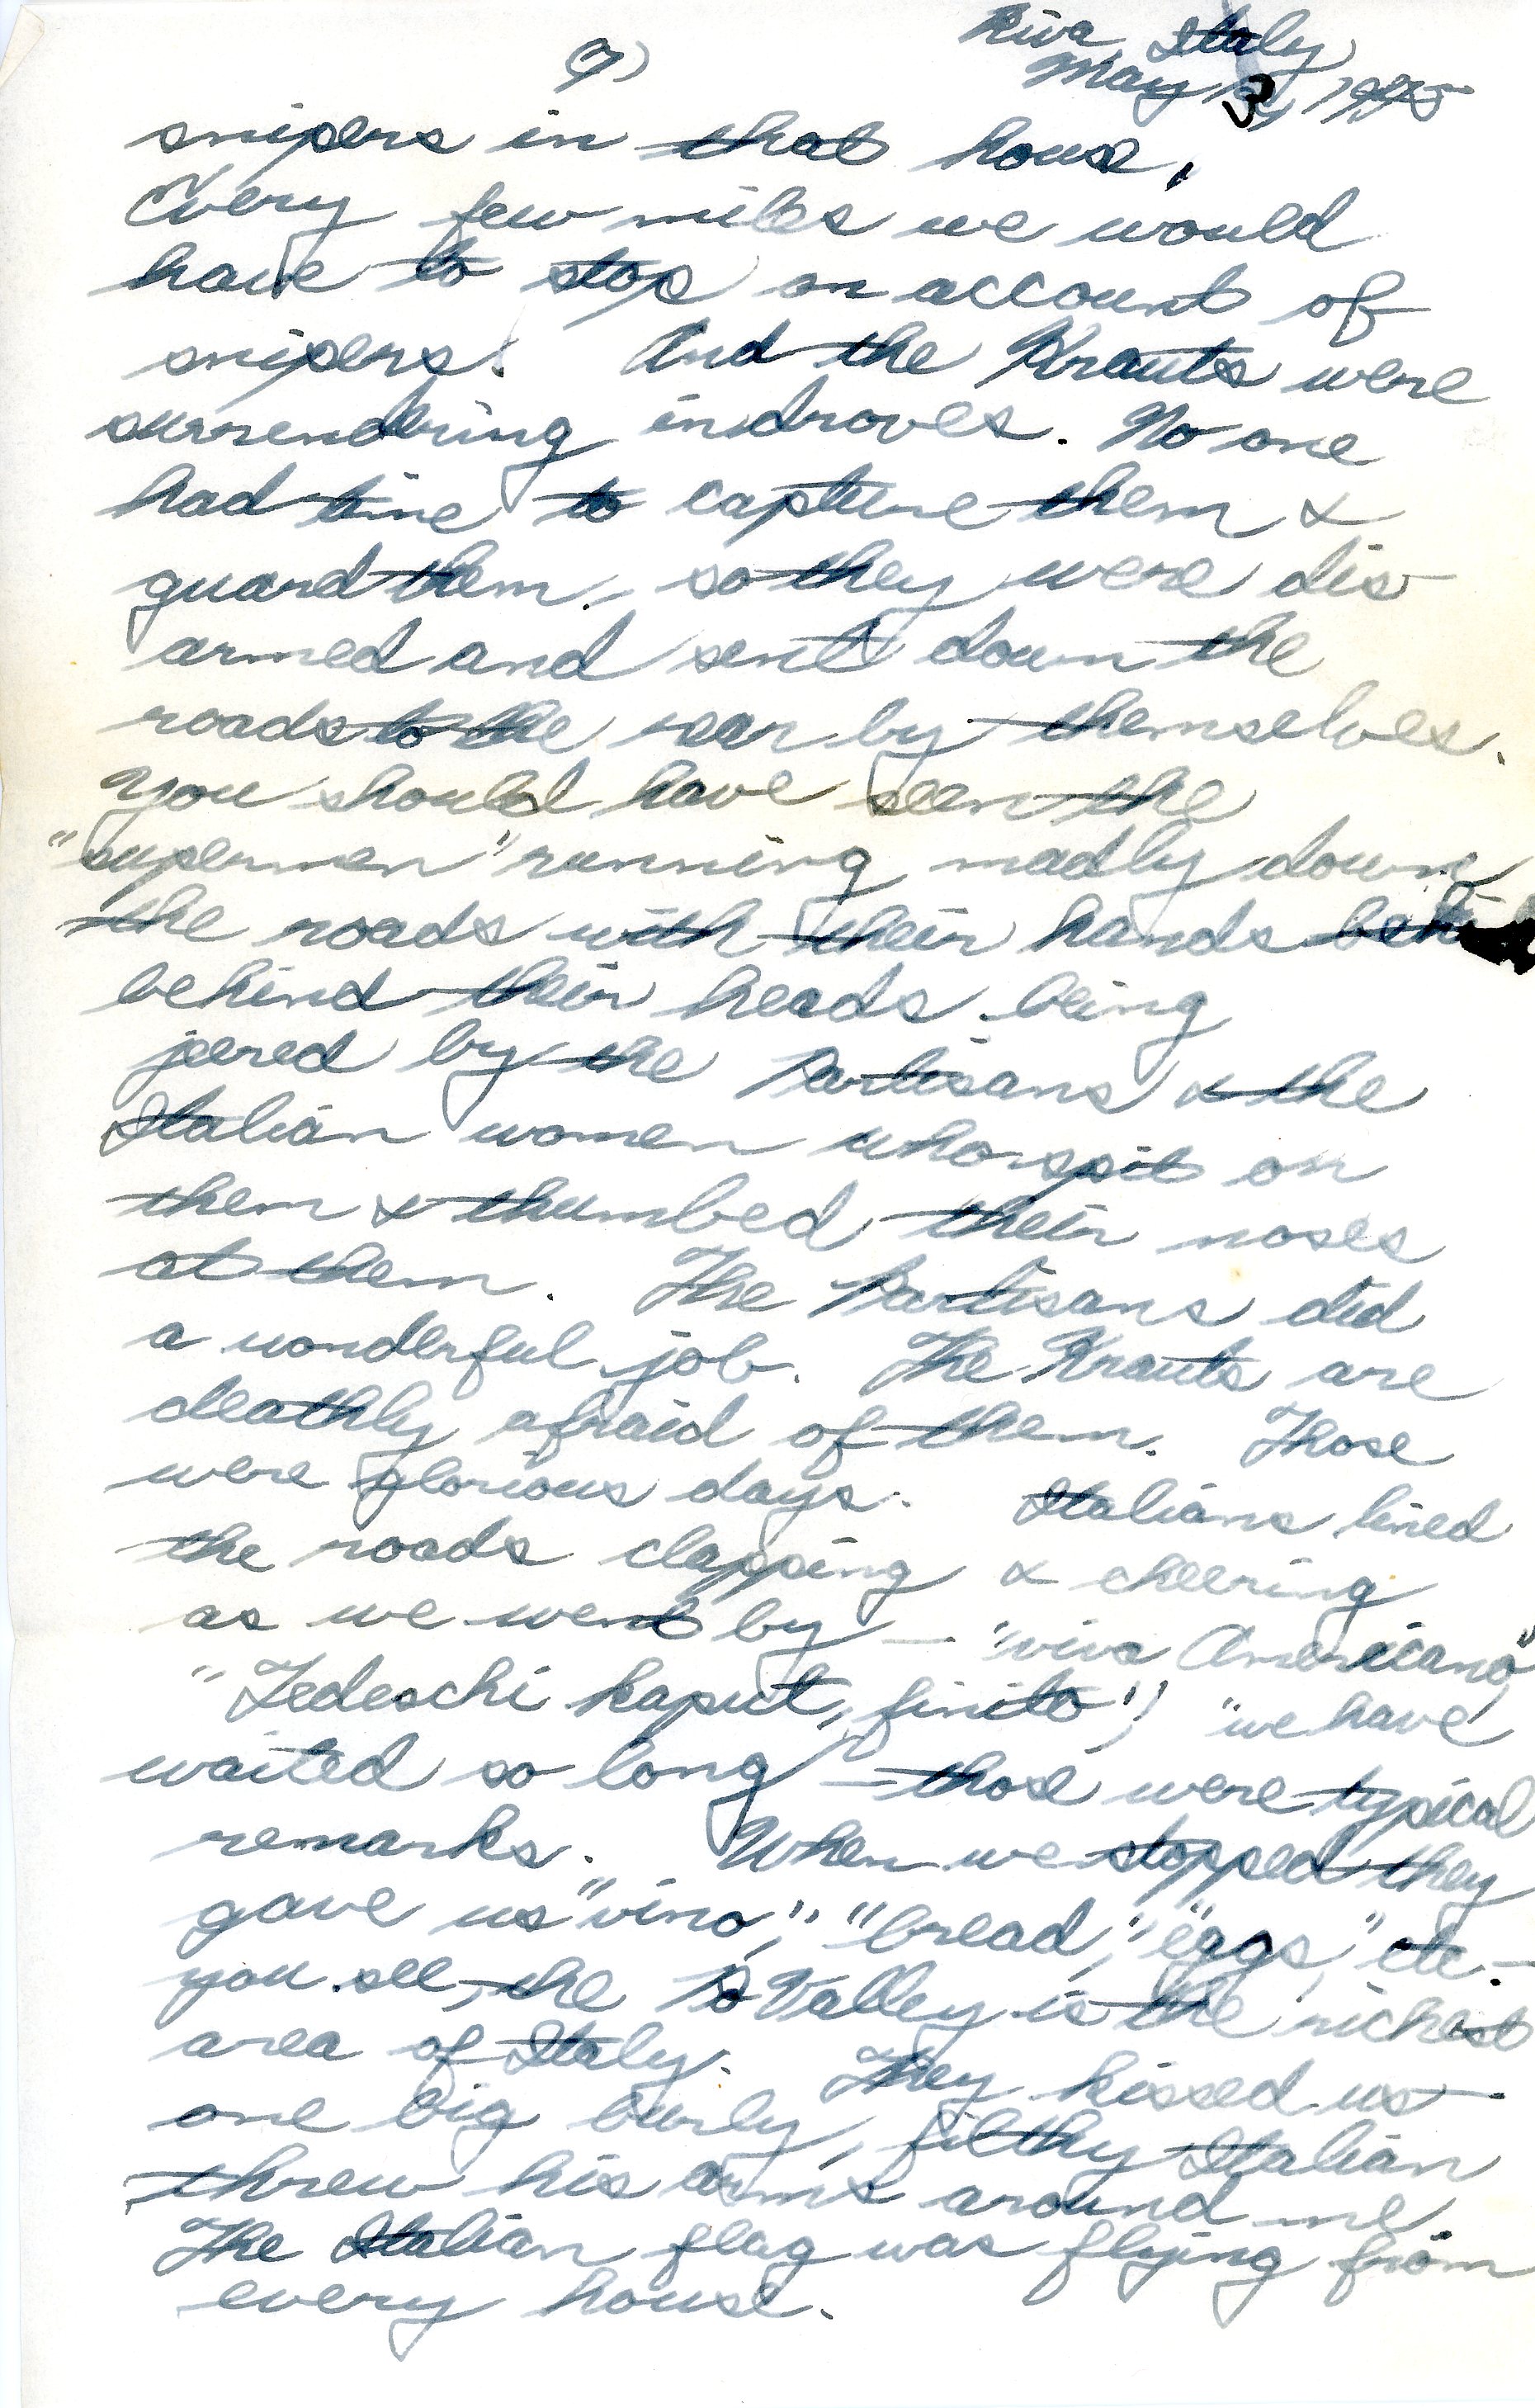 7)
Riva, Italy
May 13, 1945
snipers in that house.
Every few miles we would
have to stop on account of
snipers. And the Krauts were
surrendering in droves. No one
had time to capture them &
guard them, so they were dis-
armed and sent down the
roads to the rear by themselves.
You should have seen the
"supermen" running madly down
the roads with their hands
behind their heads being
jeered by the Partisans & the
Italian women who spit on
them & thumbed their noses
at them. The Partisans did
a wonderful job. The Krauts are
deathly afraid of them. Those
were glorious days. Italians lined
the roads clapping & cheering
as we went by — "viva Americano"
"Tedeschi kaput, finito", "we have
waited so long — those were typical
remarks. When we stopped they
gave us "vino," "bread," "eggs," etc. —
you see, the Po Valley is the richest
area of Italy. They kissed us —
one big burly, filthy Italian
threw his arms around me
The Italian flag was flying from
every house.